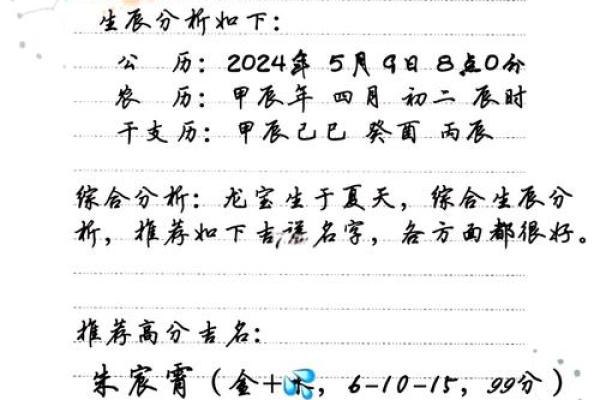 生辰分析如下：
公 历：2024年 5月 9日 8点0分
农 历：甲辰年 四月 初二 辰时
干支历：甲辰己巳 癸酉 丙辰
综合分析：龙宝生于夏天，综合生辰分
析，推荐如下吉谣名字，各方面都很好。
推荐高分吉名：
朱宸霄（金+木，6-10-15，99分）